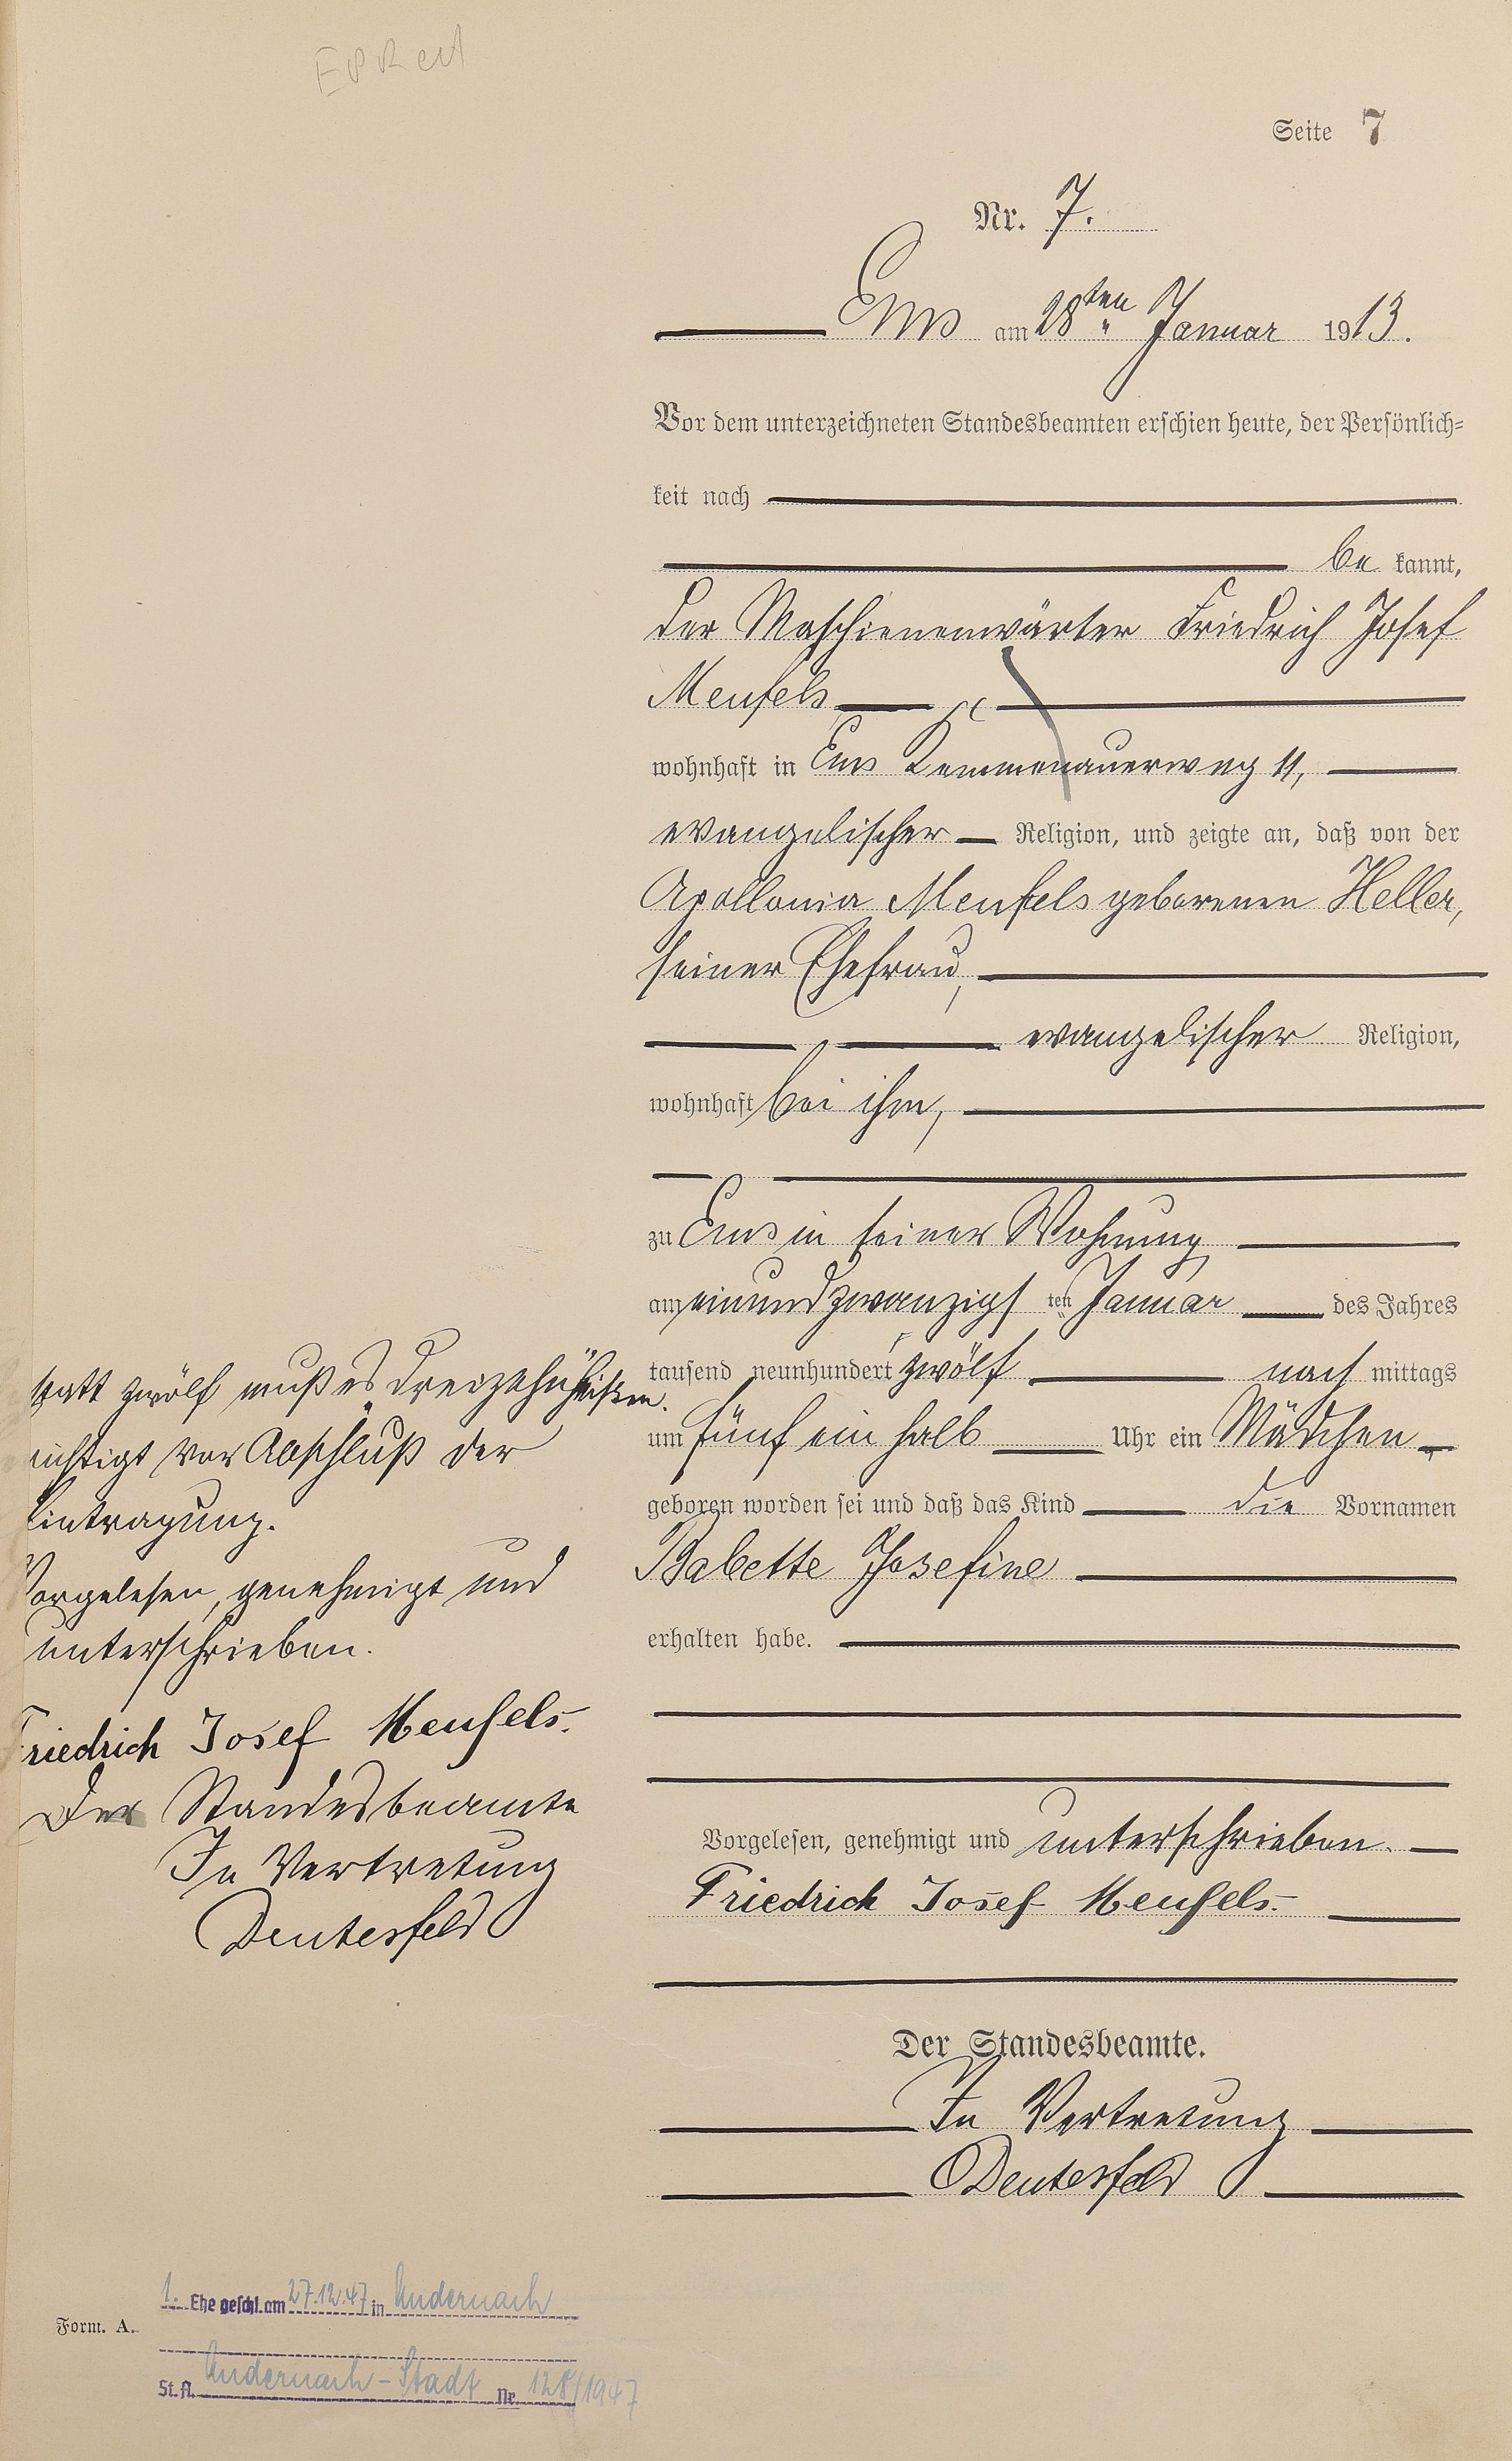 Seite 7
Nr. 7.
Ems am 28ten Januar 1913.
Vor dem unterzeichneten Standesbeamten erschien heute, der Persönlich-
keit nach
be kannt,
der Maschienenwärter Friedrich Josef
Menfels
wohnhaft in Ems Kemmenauerweg 11,
evangelischer Religion, und zeigte an, daß von der
Apollonia Menfels geborenen Heller,
seiner Ehefrau,
evangelischer Religion,
wohnhaft bei ihm,
zu Ems in seiner Wohnung
am einundzwanzigs ten Januar des Jahres
tausend neunhundert zwölf nach mittags
um fünf ein halb Uhr ein Mädchen
geboren worden sei und daß das Kind die Vornamen
Babette Josefine
erhalten habe.
Vorgelesen, genehmigt und unterschrieben.
Friedrich Josef Menfels.
Der Standesbeamte.
In Vertretung
Deutesfeld
statt zwölf muß es dreizehn heißen.
richtigt vor Abschluß der
Eintragung.
Vorgelesen, genehmigt und
unterschrieben.
Friedrich Josef Menfels.
Der Standesbeamte
In Vertretung
Deutesfeld
Form. A.
1. Ehe geschl. am 27.12.47 in Andernach
St. A. Andernach-Stadt Nr. 128/1947